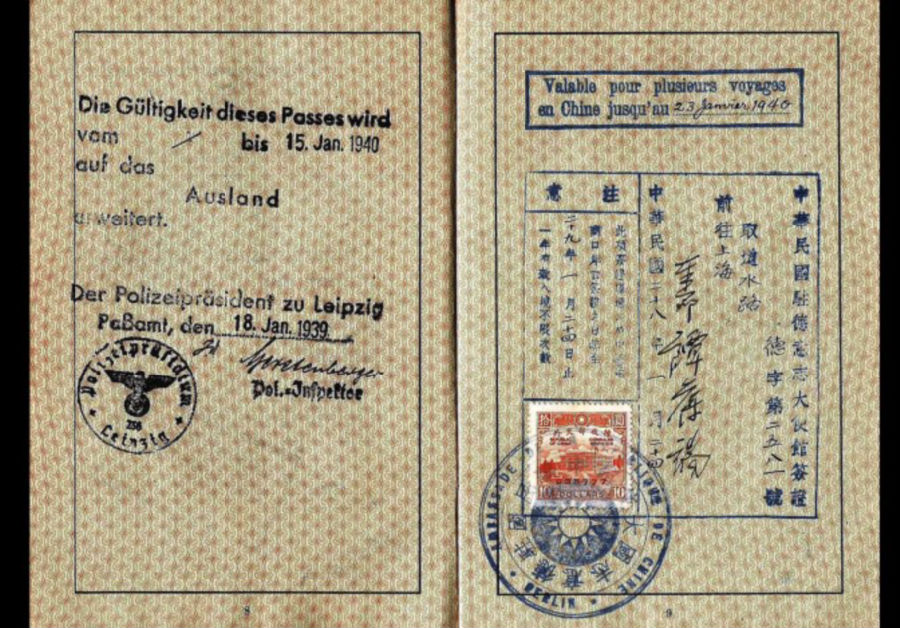 Die Gültigkeit dieses Passes wird
vom bis 15. Jan. 1940
auf das
Ausland
erweitert.
Der Polizeipräsident zu Leipzig
Paßamt, den 18. Jan. 1939.
Pol.-Inspektor
Polizeipräsidium
Leipzig
8
Valable pour plusieurs voyages
en Chine jusqu'au 23 janvier 1940
中華民國駐德意志大使館簽證
德字第二五八一號
取道水路
前往上海
中華民國二十八年一月二十四
注意
二十九年一月二十四日止
拾圓
10 DOLLARS 10
DE CHINE
BERLIN
9